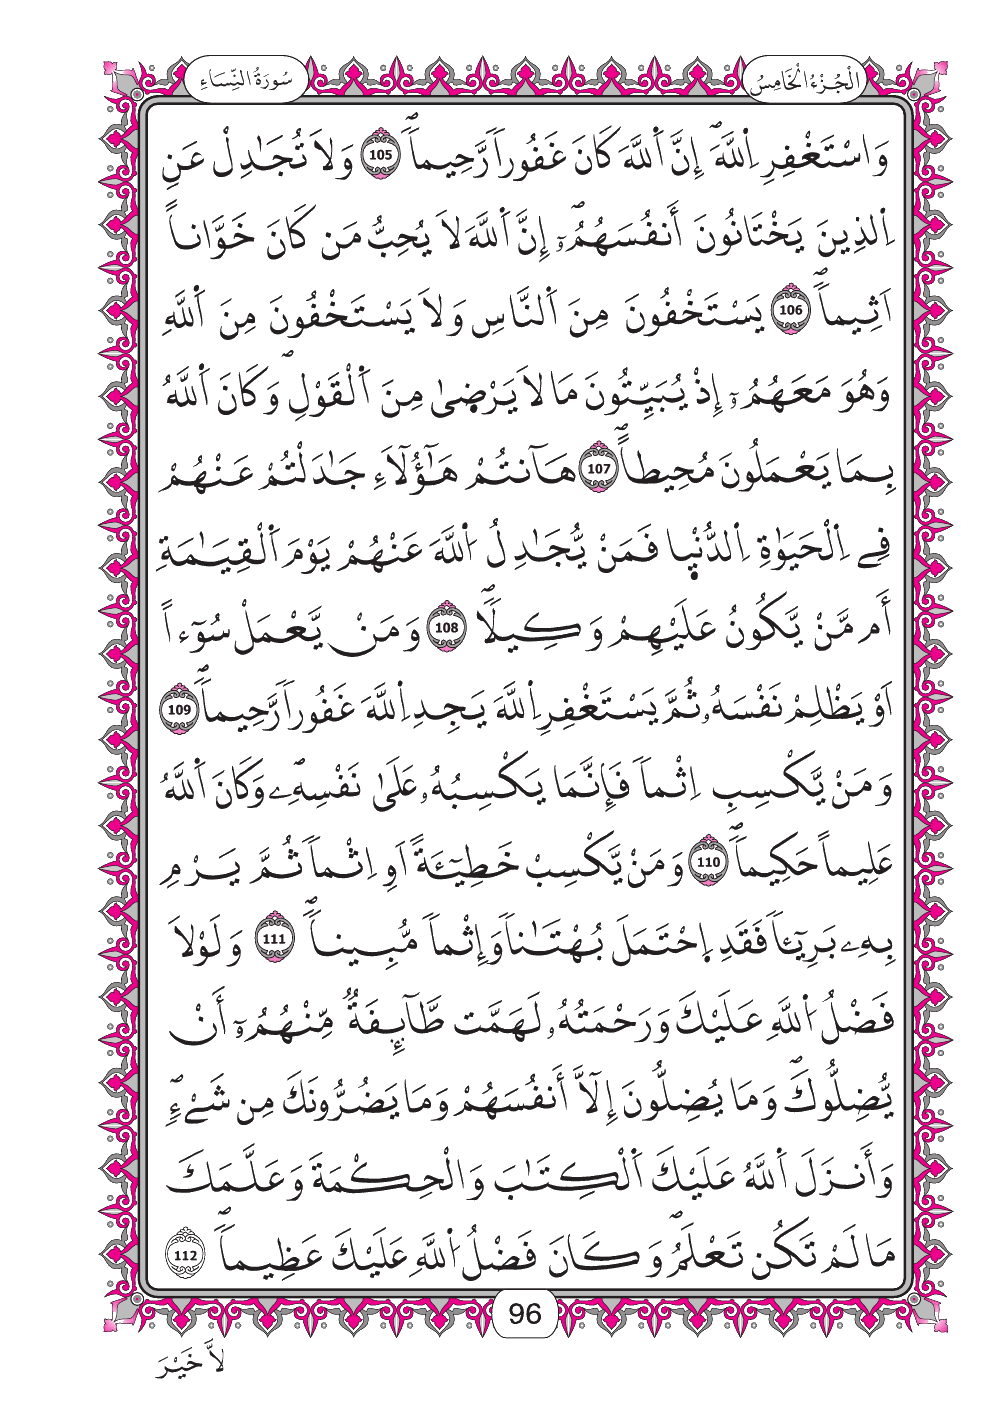 الْجُزْءُ الْخَامِسُ
سُورَةُ النِّسَاءِ
وَاسْتَغْفِرِ اِللَّهَۖ إِنَّ اَللَّهَ كَانَ غَفُوراٗ رَّحِيماٗۖ 105 وَلَا تُجَٰدِلْ عَنِ
اِلذِينَ يَخْتَانُونَ أَنفُسَهُمُۥٓۖ إِنَّ اَللَّهَ لَا يُحِبُّ مَن كَانَ خَوَّاناً
اَثِيماٗۖ 106 يَسْتَخْفُونَ مِنَ اَلنَّاسِ وَلَا يَسْتَخْفُونَ مِنَ اَللَّهِ
وَهُوَ مَعَهُمُۥٓ إِذْ يُبَيِّتُونَ مَا لَا يَرْضِىٰ مِنَ اَلْقَوْلِۖ وَكَانَ اَللَّهُ
بِمَا يَعْمَلُونَ مُحِيطاًۖ 107 هَآنتُمْ هَٰٓؤُلَآءِ جَٰدَلْتُمْ عَنْهُمْ
فِے اِلْحَيَوٰةِ اِلدُّنْيِا فَمَنْ يُّجَٰدِلُ اَللَّهَ عَنْهُمْ يَوْمَ اَلْقِيَٰمَةِ
أَم مَّنْ يَّكُونُ عَلَيْهِمْ وَكِيلاٗۖ 108 وَمَنْ يَّعْمَلْ سُوٓءاً
اَوْ يَظْلِمْ نَفْسَهُۥ ثُمَّ يَسْتَغْفِرِ اِللَّهَ يَجِدِ اِللَّهَ غَفُوراٗ رَّحِيماٗۖ 109
وَمَنْ يَّكْسِبِ اِثْماٗ فَإِنَّمَا يَكْسِبُهُۥ عَلَىٰ نَفْسِهِۦۖ وَكَانَ اَللَّهُ
عَلِيماً حَكِيماٗۖ 110 وَمَنْ يَّكْسِبْ خَطِيٓـَٔةً اَوِ اِثْماٗ ثُمَّ يَرْمِ
بِهِۦ بَرِيٓـٔاٗ فَقَدِ اِحْتَمَلَ بُهْتَٰناٗ وَإِثْماٗ مُّبِيناٗۖ 111 وَلَوْلَا
فَضْلُ اُللَّهِ عَلَيْكَ وَرَحْمَتُهُۥ لَهَمَّت طَّآئِفَةٞ مِّنْهُمُۥٓ أَنْ
يُّضِلُّوكَۖ وَمَا يُضِلُّونَ إِلَّآ أَنفُسَهُمْ وَمَا يَضُرُّونَكَ مِن شَےْءٖۖ
وَأَنزَلَ اَللَّهُ عَلَيْكَ اَلْكِتَٰبَ وَالْحِكْمَةَ وَعَلَّمَكَ
مَا لَمْ تَكُن تَعْلَمُۖ وَكَانَ فَضْلُ اُللَّهِ عَلَيْكَ عَظِيماٗۖ 112
96
لَّا خَيْرَ